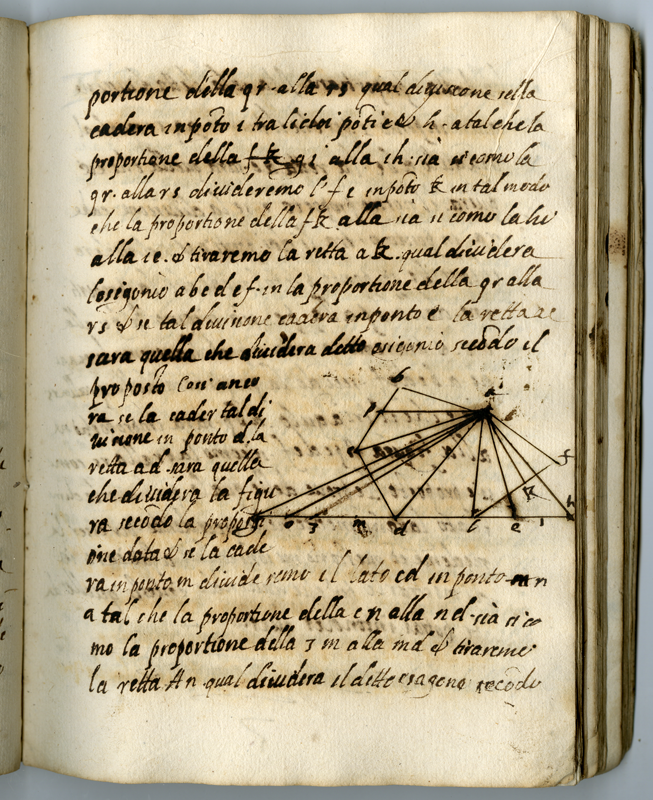 portione della qr. alla rs qual divisione se lla
cadera in poto i tra li doi poti e & h. a tal che la
proportione della g i alla ih. sia si como la
qr. alla rs divideremo l' f e in poto k in tal modo
che la proportione della fk alla sia si como la hi
alla ie. & tiraremo la retta a k. qual dividera
lo sigonio a b c d e f. in la proportione della qr alla
rs & se tal divisione cadera in ponto e la retta ae
sara quella che dividera detto esigonio secodo il
proposto Cosi anco
ra se la cader tal di
visione in ponto d. la
retta ad. sara quella
che dividera la figu
ra secodo la proporti
one data & se la cade
ra in ponto m divide remo il lato cd in ponto n
a tal che la proportione della c n alla n d. sia si co
mo la proportione della 3 m alla md & tiraremo
la retta An qual dividera il ditto esagono secodo
b
a
p
c
f
k
h
3
m
d
e
i